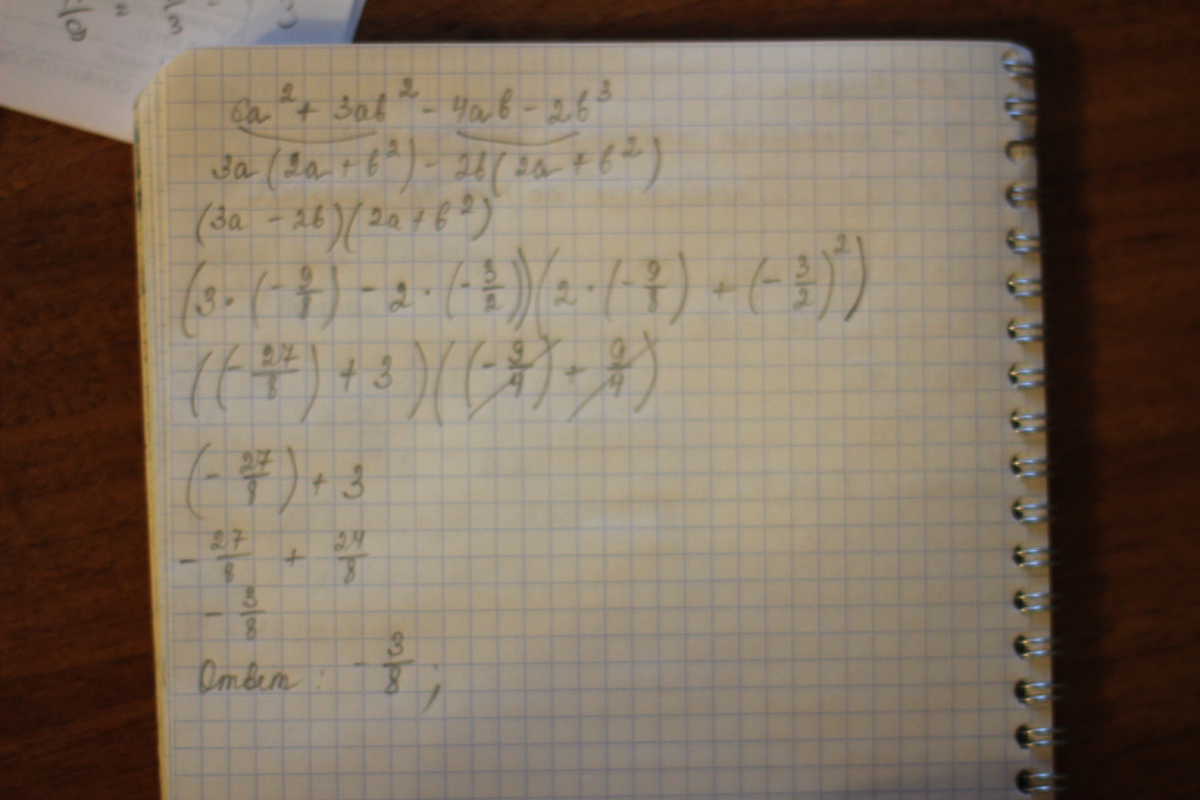 6a² + 3ab² - 4ab - 2b³
3a(2a + b²) - 2b(2a + b²)
(3a - 2b)(2a + b²)
(3·(-9/8) - 2·(-3/2))(2·(-9/8) + (-3/2)²)
((-27/8) + 3)((-9/4) + 9/4)
(-27/8) + 3
-27/8 + 24/8
-3/8
Ответ: -3/8;